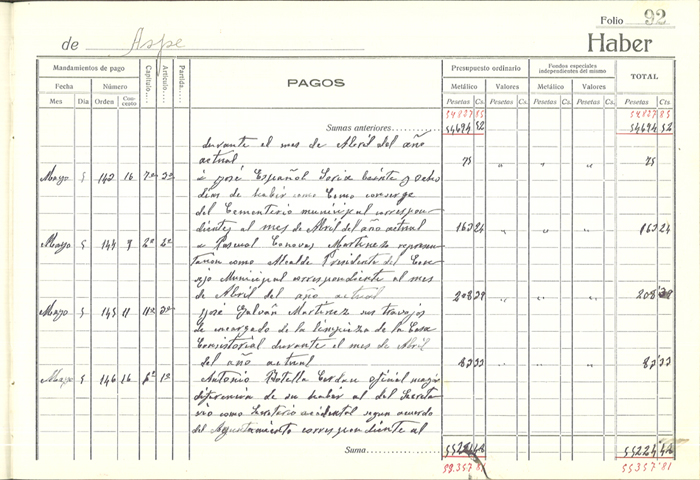 Folio 92
de Aspe Haber
Mandamientos de pago Capítulo.... Artículo.... Partida.... PAGOS Presupuesto ordinario Fondos especiales independientes del mismo TOTAL
Fecha Número Metálico Valores Metálico Valores
Mes Día Orden Con-cepto Pesetas Cs. Pesetas Cs. Pesetas Cs. Pesetas Cs. Pesetas Cts
54827 85 54827 85
Sumas anteriores 54694 52 54694 52
durante el mes de Abril del año
actual 75 " " " 75
Mayo 5 16 7º 2º a José Español Soria veinte y ocho
dias de haber como conserge
del Cementerio municipal correspon-
dientes al mes de Abril del año actual 163 24 " " " 163 24
Mayo 5 144 9 2º a Pascual Canovas Martinez represen-
tacion como Alcalde Presidente del Con-
sejo Municipal correspondiente al mes
de Abril del año actual 208 29 " " " 208 29
Mayo 5 145 11 José Galván Martinez sus trabajos
de encargado de la limpieza de la Casa
Consistorial durante el mes de Abril
del año actual 83 33 " " " 83 33
Mayo 5 146 16 1º Antonio Botella Cerdan oficial
diferencia de su haber al del Secreta
rio como Secretario accidental segun acuerdo
del Ayuntamiento correspondiente al
Suma 55224 42 55224 42
55357 81 55357 81